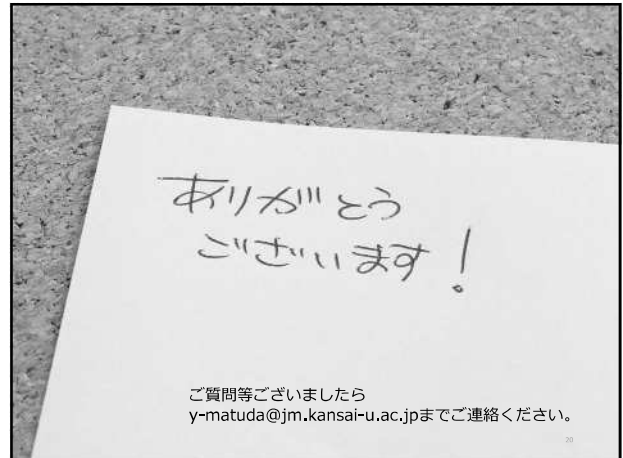 ありがとう
ございます!
ご質問等ございましたら
y-matuda@jm.kansai-u.ac.jpまでご連絡ください。
20